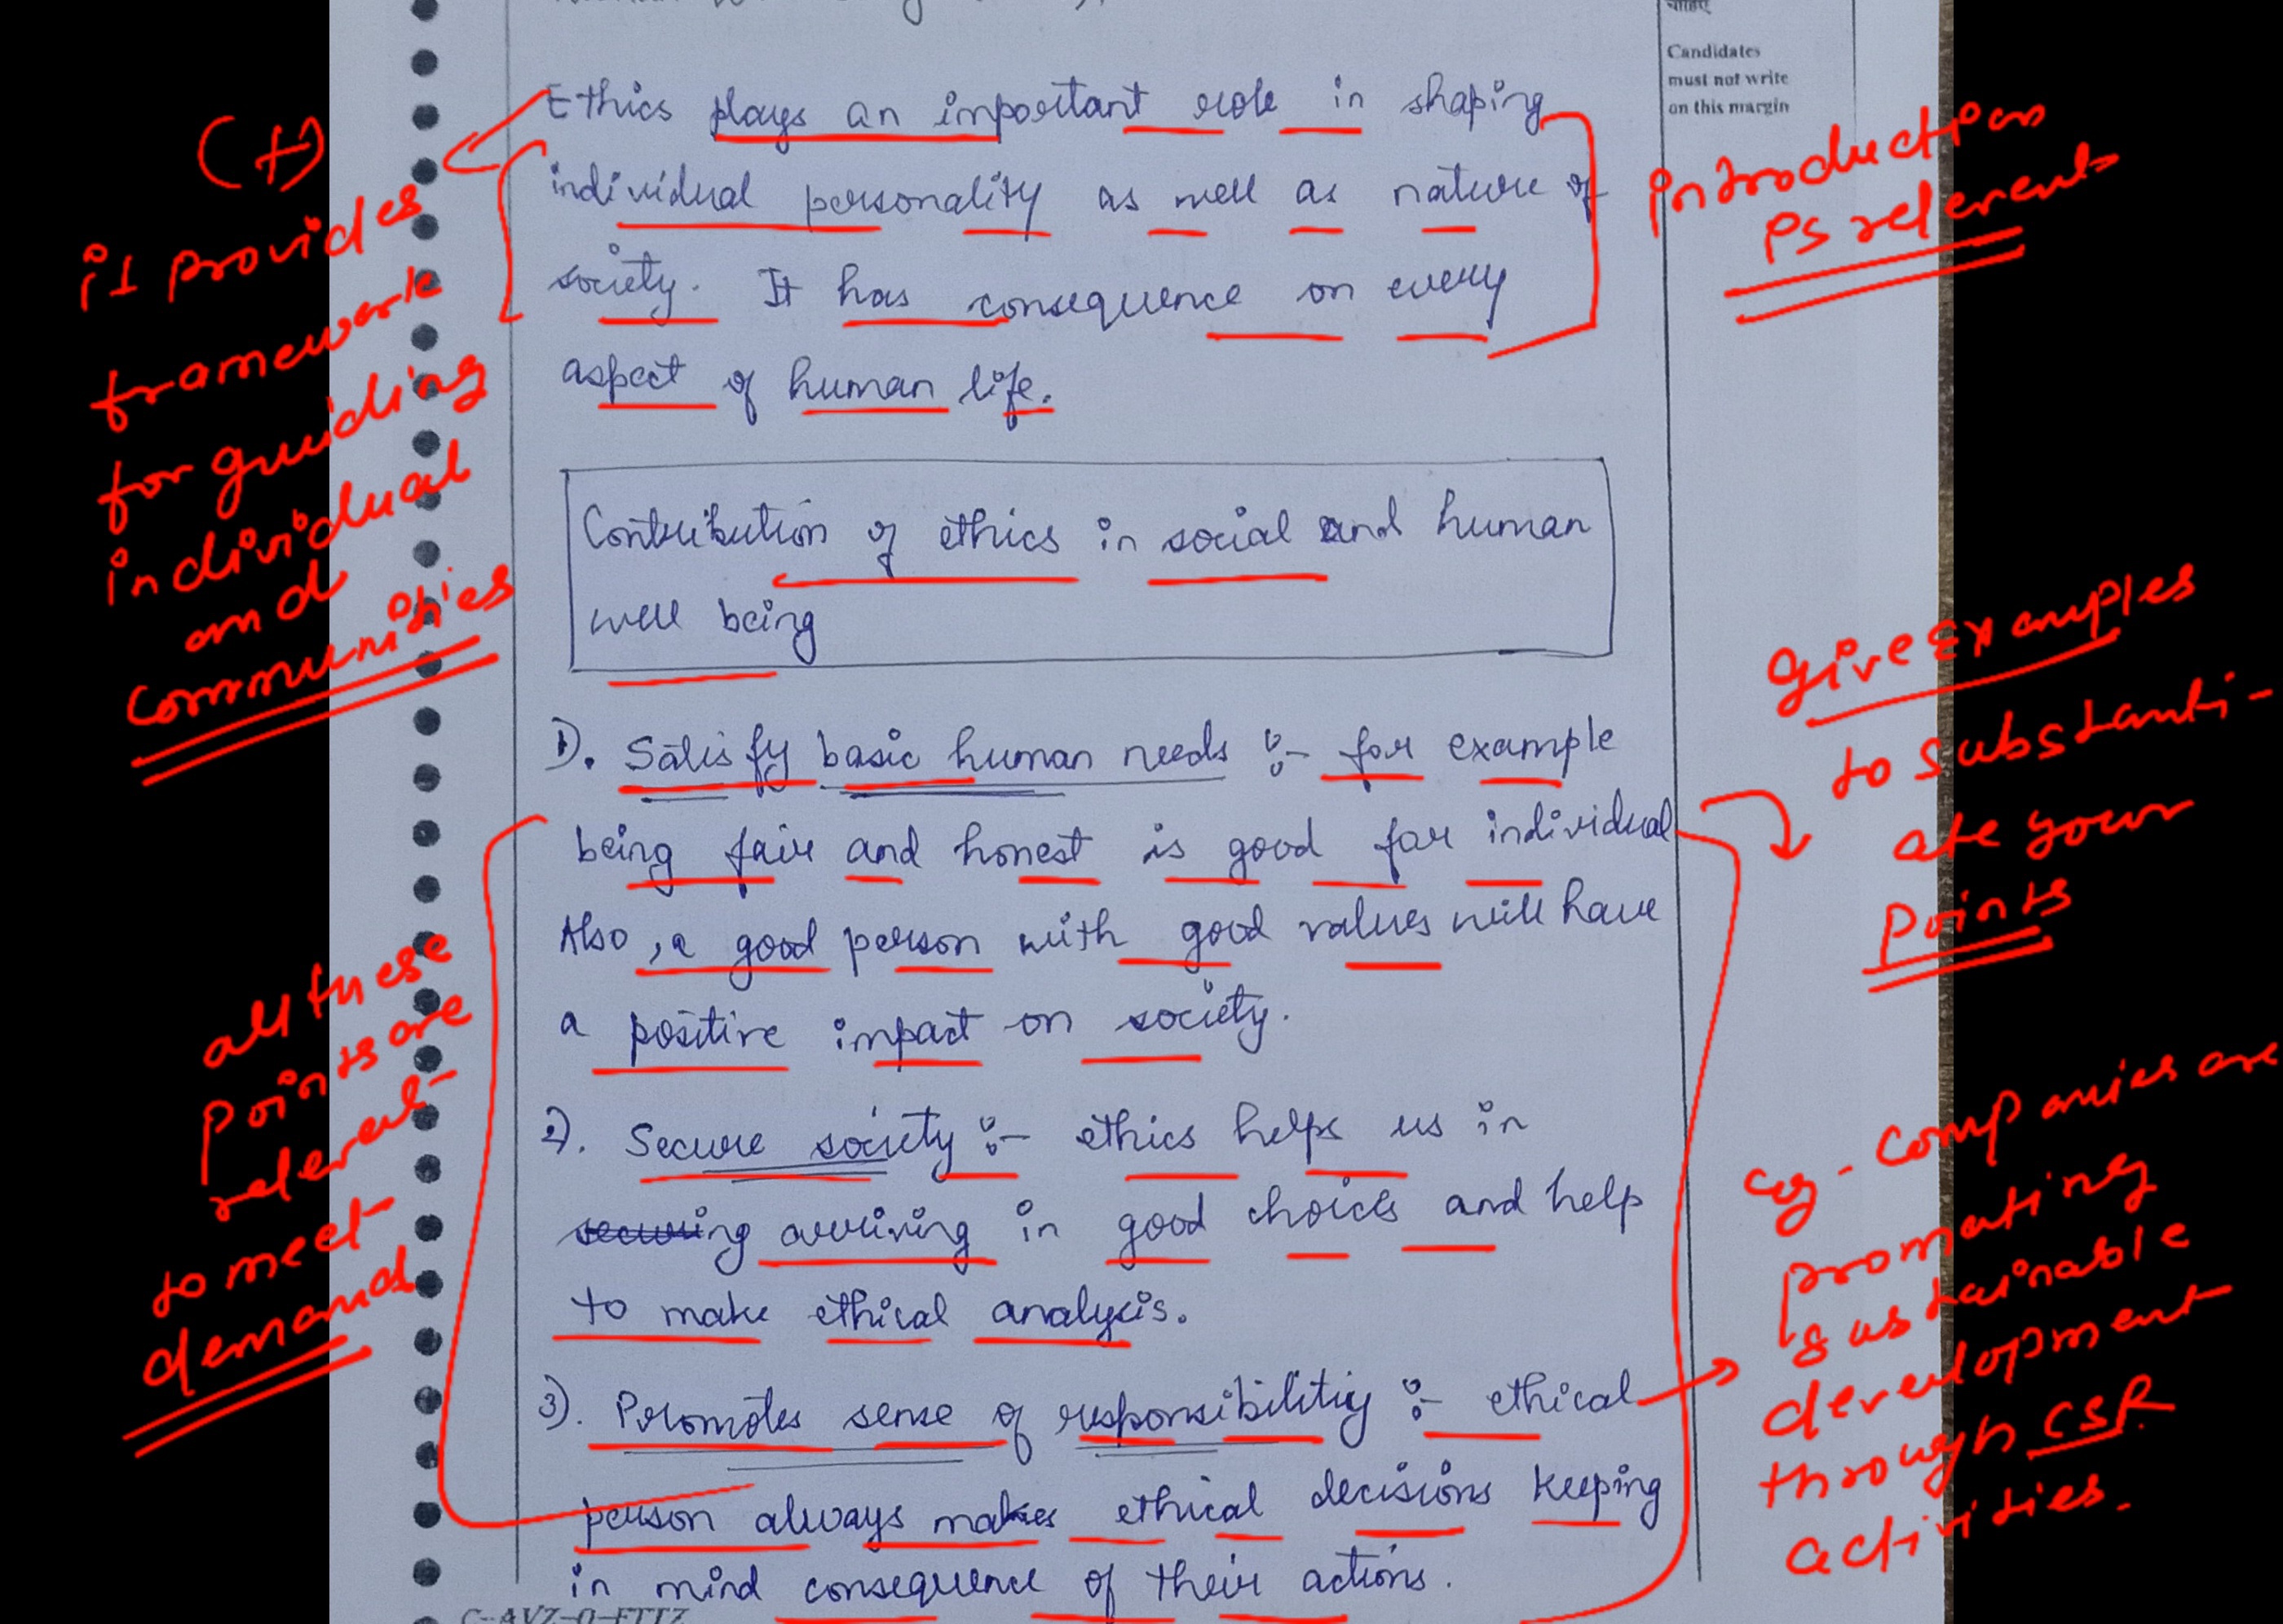 चाहिए
Candidates
must not write
on this margin
Ethics plays an important role in shaping
individual personality as well as nature of
society. It has consequence on every
aspect of human life.
(+)
it provides
framework
for guiding
individual
and
communities
introduction
is relevant
Contribution of ethics in social and human
well being
1). Satisfy basic human needs :- for example
being fair and honest is good for individual
Also, a good person with good values will have
a positive impact on society.
2). Secure society :- ethics helps us in
securing arriving in good choices and help
to make ethical analysis.
3). Promotes sense of responsibility :- ethical
person always makes ethical decisions keeping
in mind consequence of their actions.
all these
points are
relevant
to meet
demand
Give Examples
to substanti-
ate your
points
eg - Companies are
promoting
sustainable
development
through CSR
activities.